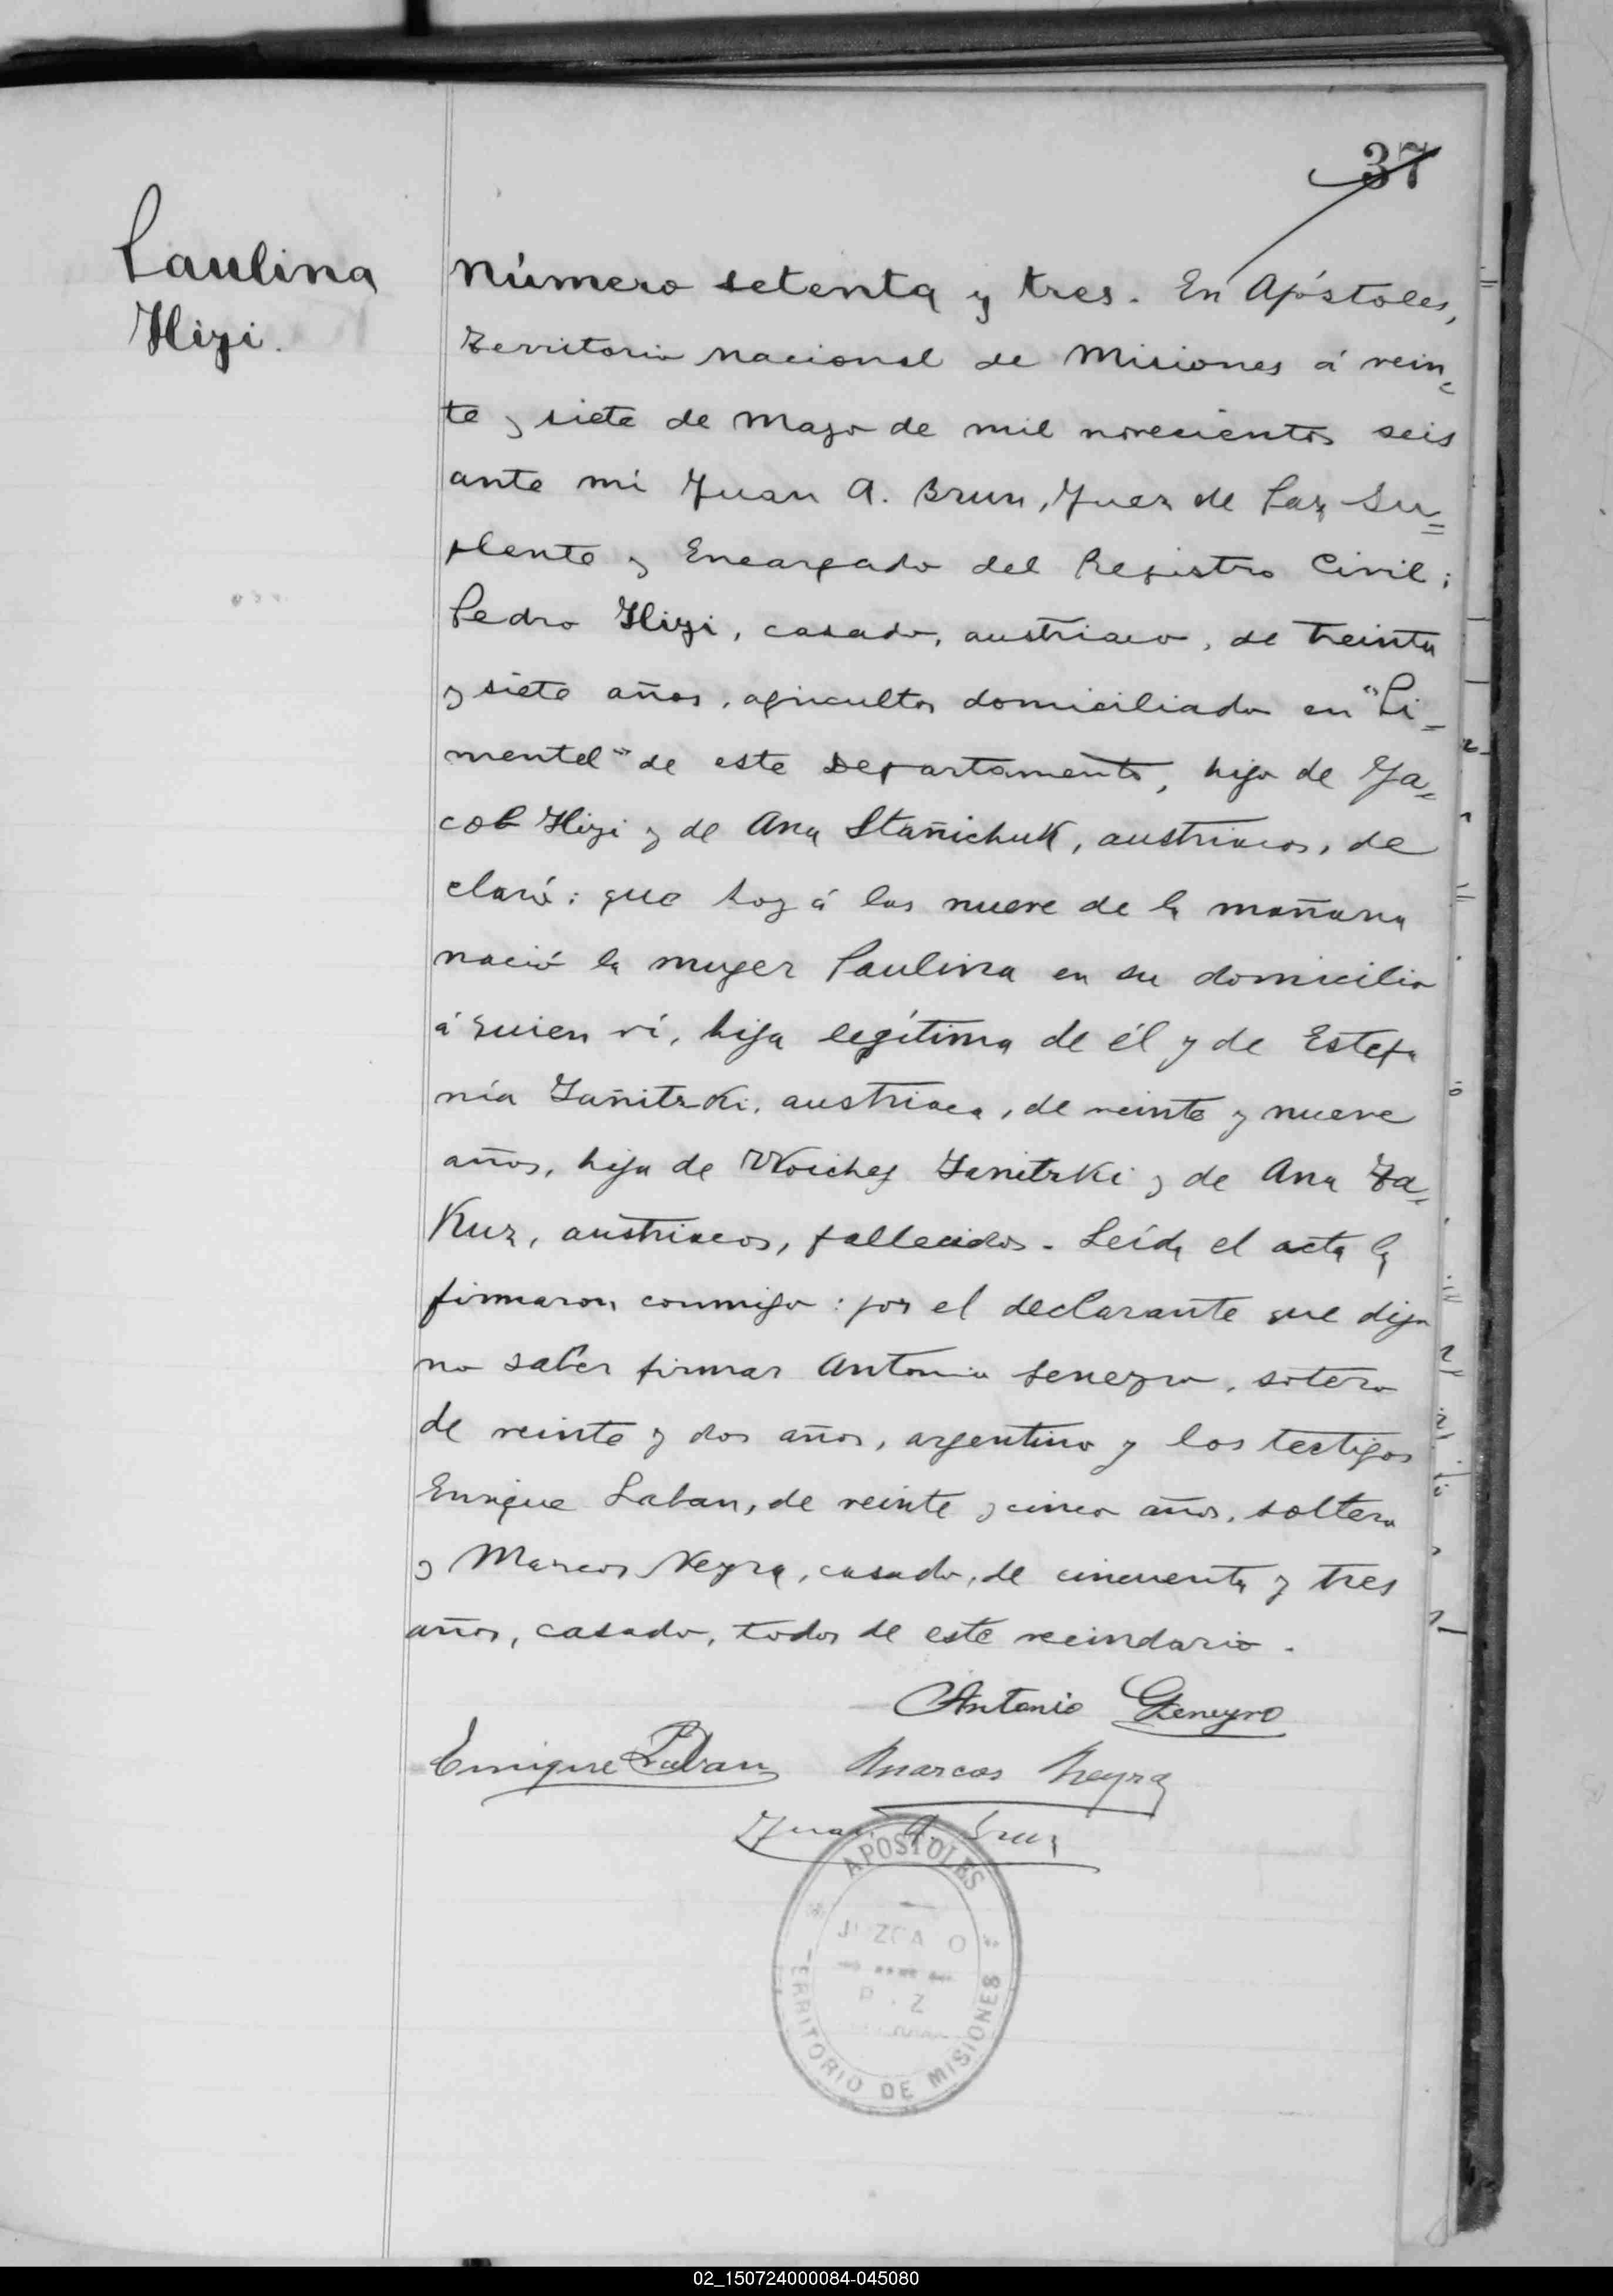 37
Paulina
Hizi.
Número setenta y tres. En Apóstoles,
Territorio Nacional de Misiones á vein-
te y siete de Mayo de mil novecientos seis
ante mi Juan A. Brun, Juez de Paz Su=
plente y Encargado del Registro Civil;
Pedro Hizi, casado, austriaco, de treinta
y siete años, agricultor domiciliado en "Pi=
mentel" de este Departamento, hijo de Ja=
cob Hizi y de Ana Stañichuk, austriacos, de
claró: que hoy á las nueve de la mañana
nació la mujer Paulina en su domicilio
á quien ví, hija legítima de él y de Estefa
nía Zañitzki, austriaca, de veinte y nueve
años, hija de Woichej Zanitzki y de Ana Za=
Kuz, austriacos, fallecidos. Leída el acta la
firmaron conmigo: por el declarante que dijo
no saber firmar Antonio Geneyro, sotero
de veinte y dos años, argentino y los testigos
Enrique Laban, de veinte y cinco años, soltero
y Marcos Neyra, casado, de cincuenta y tres
años, casado, todos de este vecindario.
Antonio Geneyro
Enrique Laban Marcos Neyra
Juan A. Brun
APOSTOLES
JUZGADO
TERRITORIO DE MISIONES
02_150724000084-045080